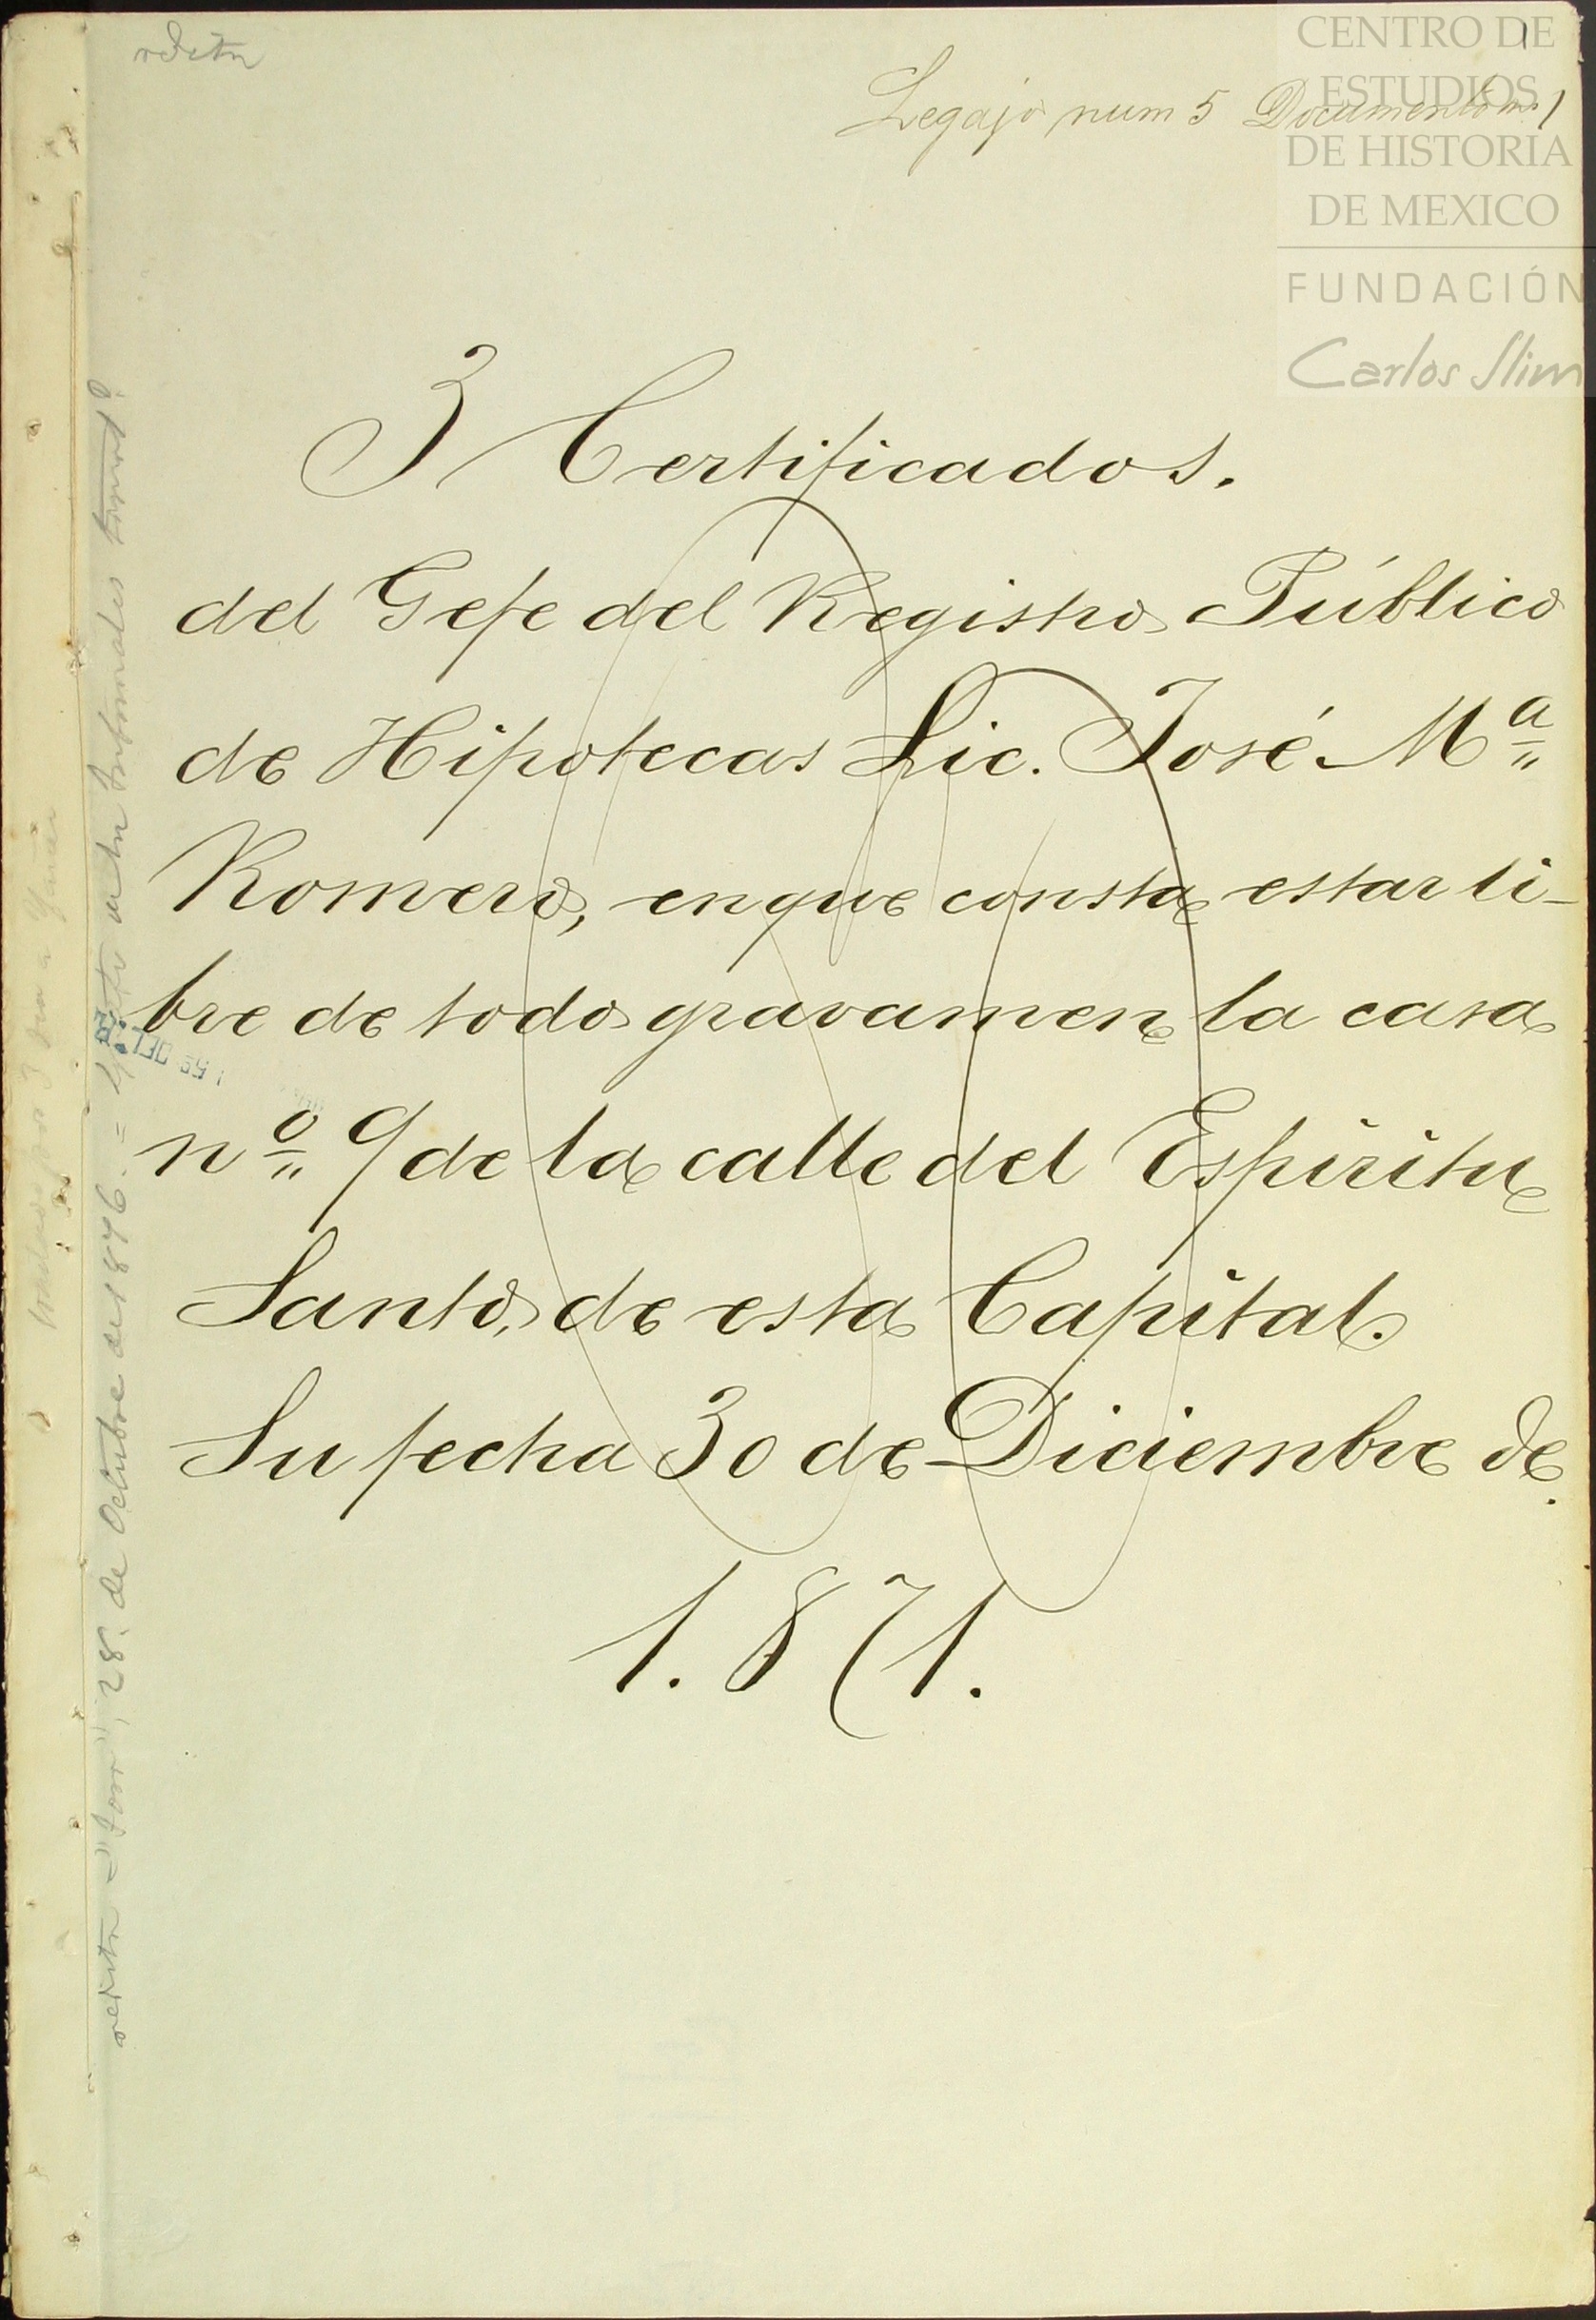 1
Legajo num 5 Documento n. 1
CENTRO DE
ESTUDIOS
DE HISTORIA
DE MEXICO
FUNDACIÓN
Carlos Slim
3 Certificados.
del Gefe del Registro Público
de Hipotecas Lic. José Mª
Romero, en que consta estar li-
bre de todo gravamen la casa
nº 9 de la calle del Espiritu
Santo, de esta Capital.
Su fecha 30 de Diciembre de
1.871.
28. de Octubre de 1876.